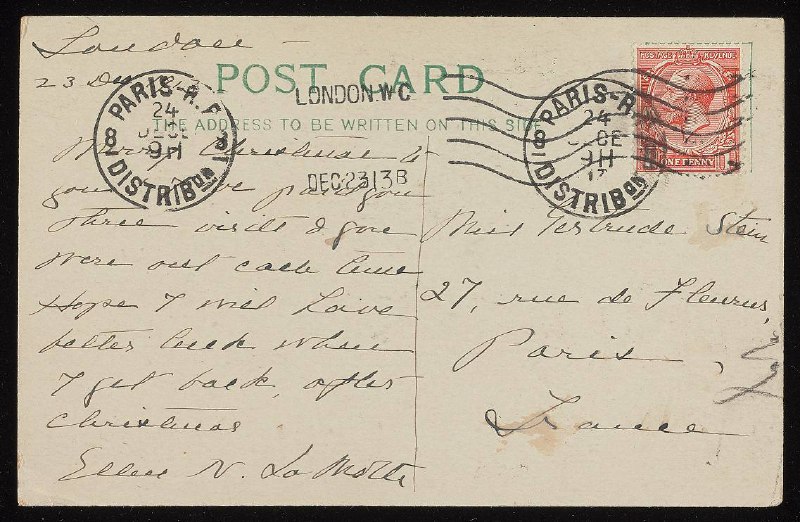 London -
23 Dec
POST CARD
THE ADDRESS TO BE WRITTEN ON THIS SIDE
PARIS-R.P.
24
9H
8 8
DISTRIBON
LONDON·W.C
DEC 23 13 B
PARIS-R.P.
24
9H
13
8
DISTRIBON
POSTAGE REVENUE
ONE PENNY
Merry Christmas to
you Have paid you
three visits & you
were out each time
Hope I will have
better luck when
I get back, after
Christmas
Ellen N. La Motte
Miss Gertrude Stein
27, rue de Fleurus,
Paris,
France